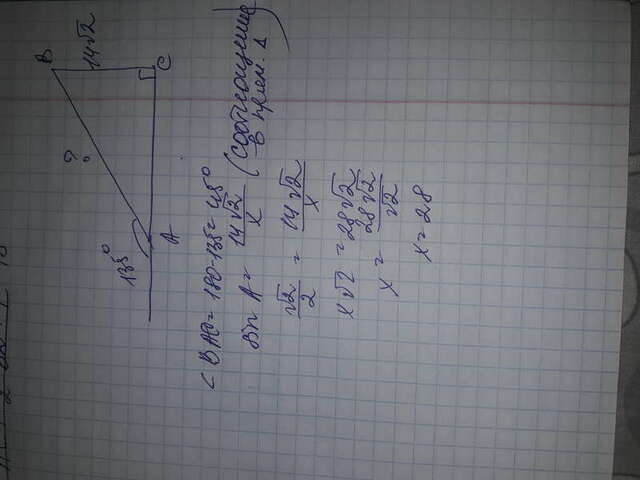 B
?
14√2
135°
A
C
∠BAC = 180-135 = 45°
sin A = 14√2/x (соотношение
в прям. Δ)
√2/2 = 14√2/x
x√2 = 28√2
x = 28√2/√2
x = 28